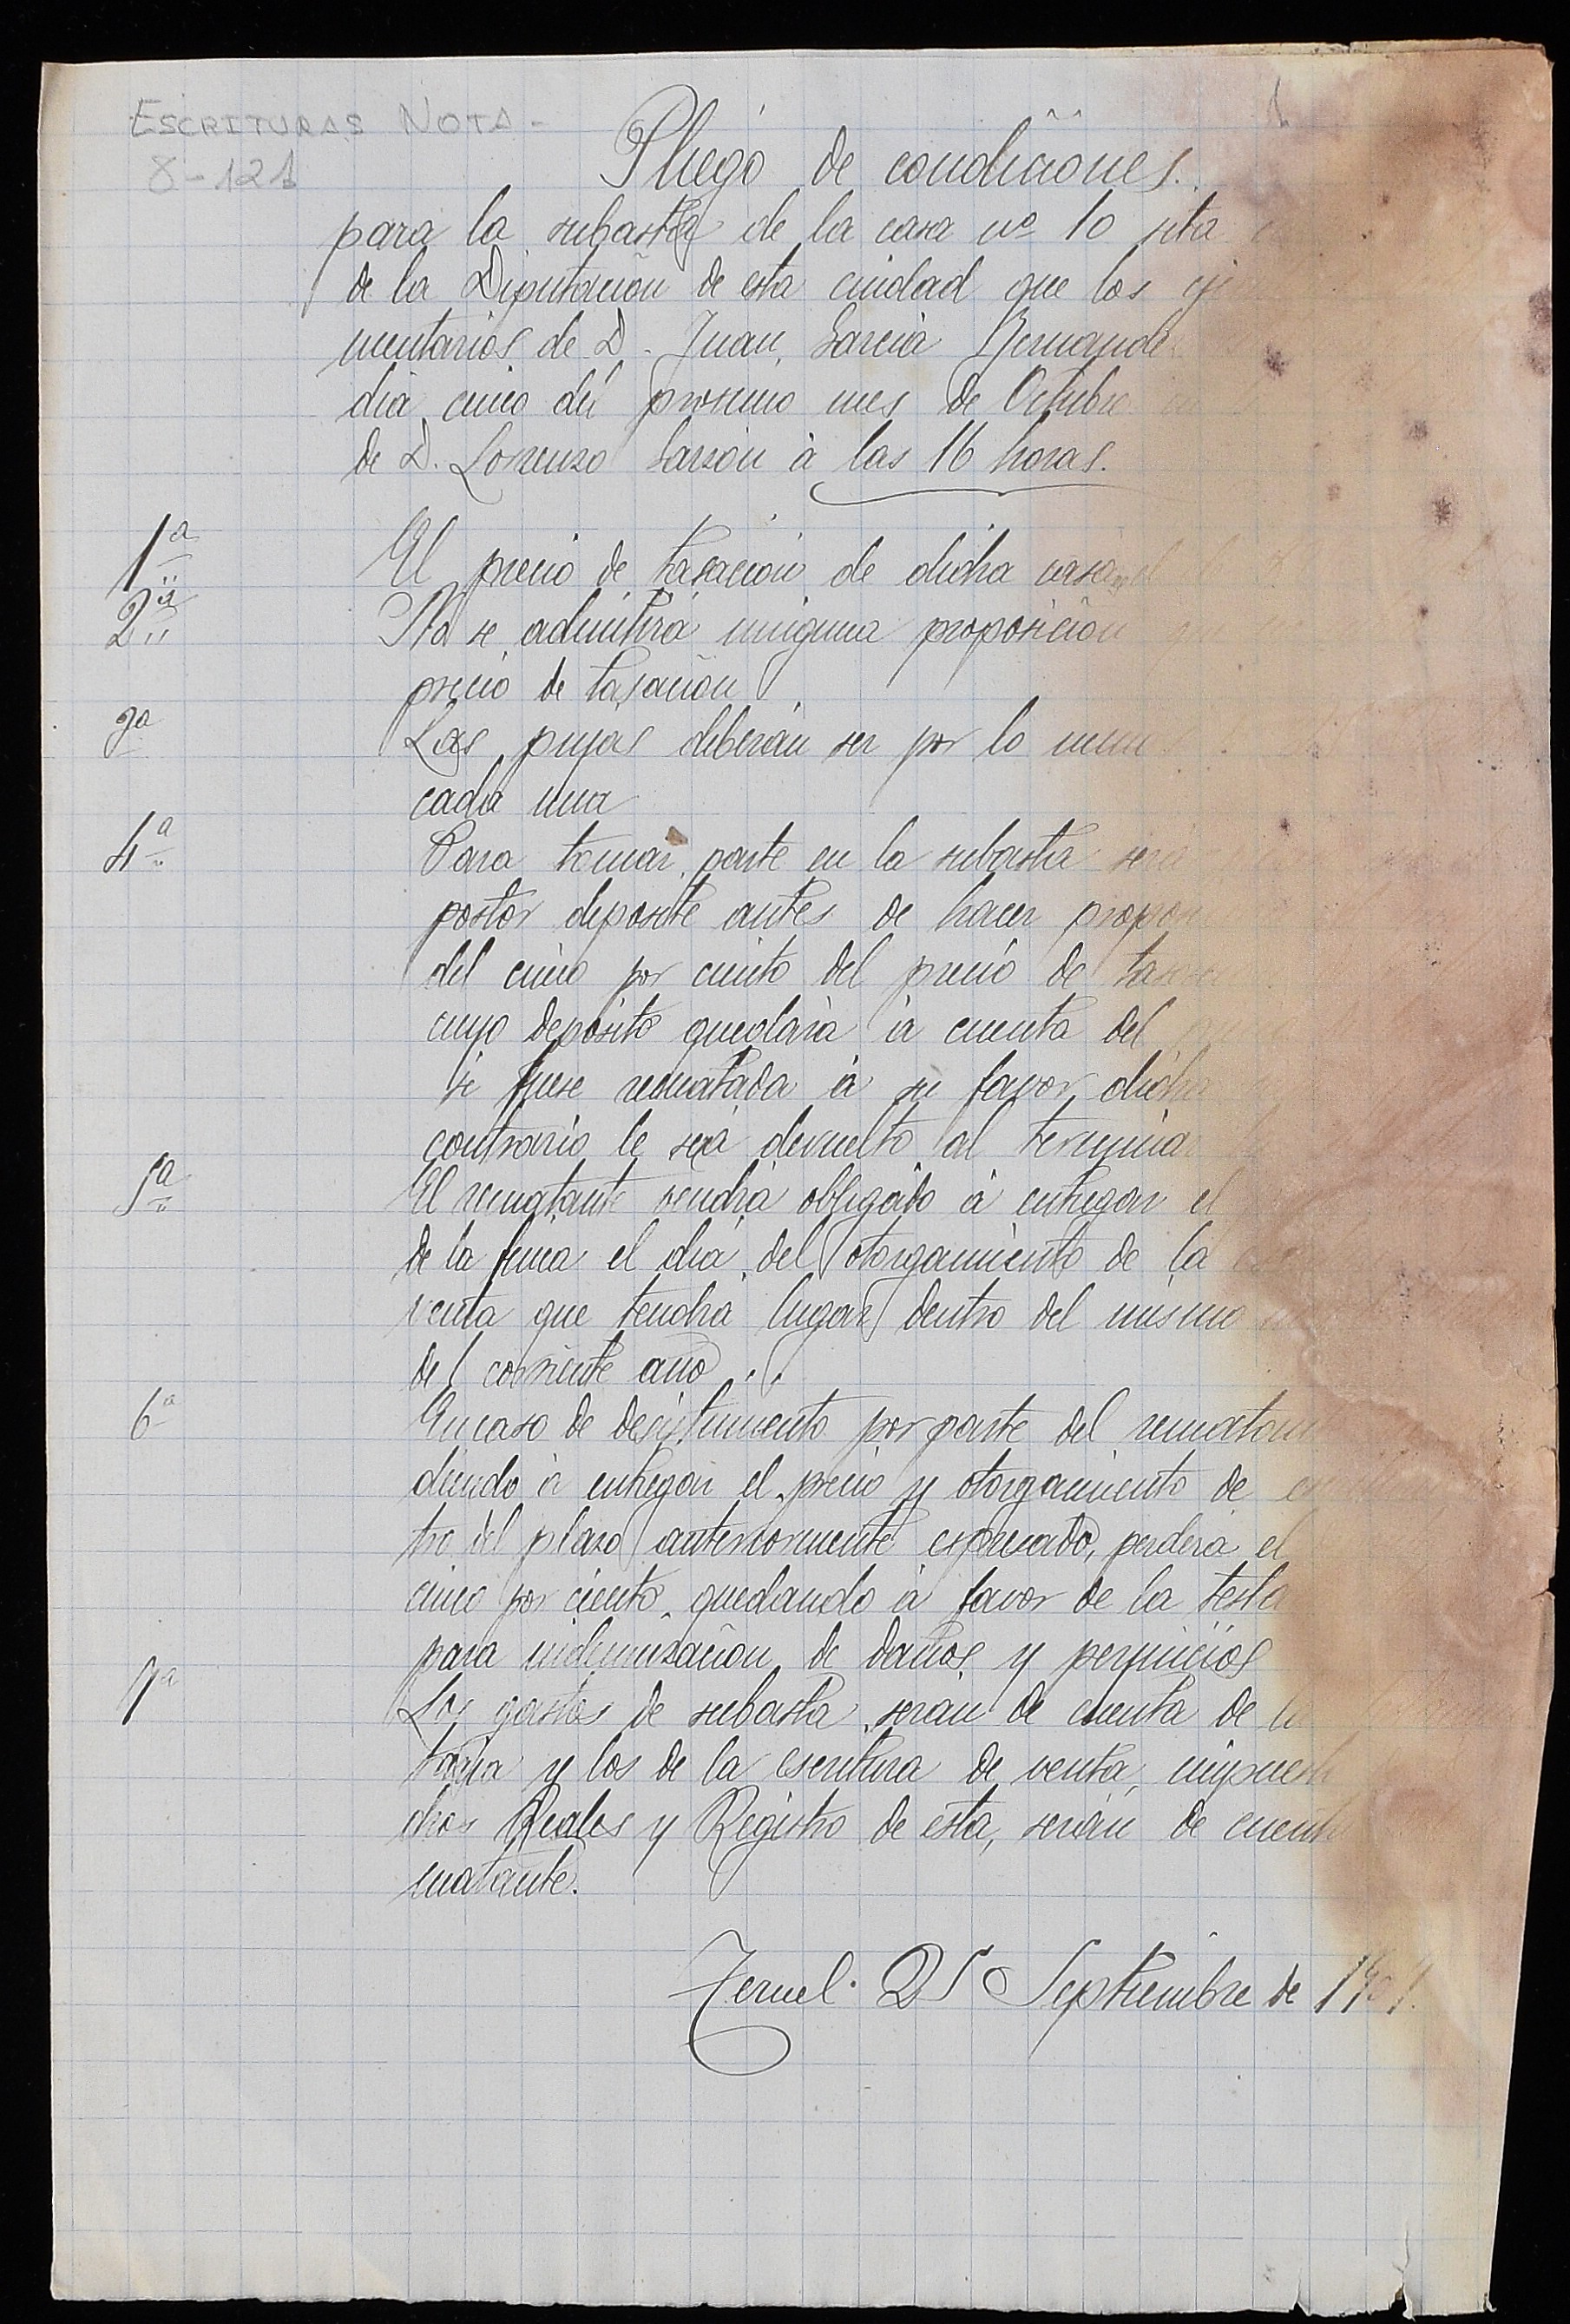 ESCRITURAS NOTA-
8-121
Pliego de condiciones.
para la subasta de la casa nº 10 sita
de la Diputación de esta ciudad que los
mentarios de D. Juan García Hernande
día cinco del proximo mes de Octubre
de D. Lorenzo Garzón á las 16 horas.
1ª El precio de tasación de dicha casa
2ª No se admitirá ninguna proposición
precio de tasación
3ª Las pujas deberán ser por lo
cada una
4ª Para tomar parte en la subasta será
postor deposite antes de hacer propos
del cinco por ciento del precio de tasac
cuyo depósito quedará á cuenta del
si fuese rematada á su favor dicha
contrario le será devuelto al terminar
5ª El rematante vendrá obligado á entregar el
de la finca el día del otorgamiento de la
venta que tendrá lugar dentro del mismo
del corriente año.
6ª En caso de desistimiento por parte del rematan
diendo á entregar el precio y otorgamiento de
tro del plazo anteriormente espresado, perderá el
cinco por ciento, quedando á favor de la testa
para indemnización de daños y perjuicios
7ª Los gastos de subasta serán de cuenta de la
taria y los de la escritura de venta, impuest
chos Reales y Registro de esta, serán de cuenta
matante.
Teruel 25 Septiembre de